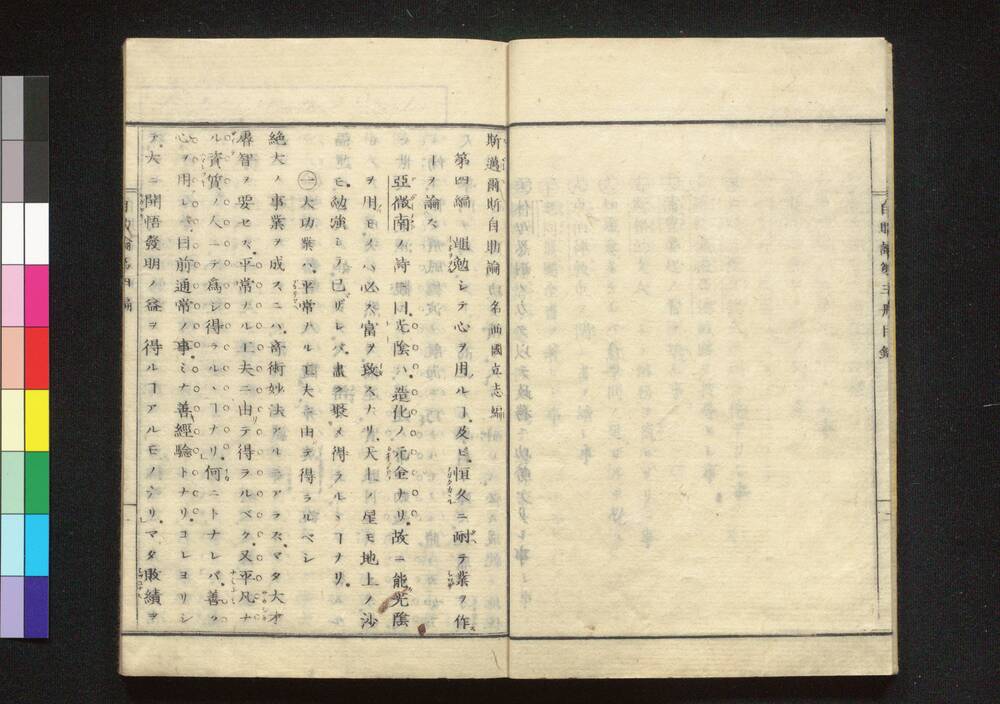 自助論第三冊目錄
斯邁爾斯自助論 一名西國立志編
第四編 黽勉シテ心ヲ用ルヿ及ビ恒久ニ耐テ業ヲ作
スヿヲ論ズ
亞微南ノ詩ニ曰ク光陰ハ造化ノ元金ナリ故ニ能光陰
ヲ用モノハ必ズ富ヲ致スナリ天上ノ星モ地上ノ沙
モ勉強シテ已ザレバ盡ク聚メ得ラルヽヿナリ
㊀大功業ハ平常ナル工夫ニ由テ得ラルベシ
絶大ノ事業ヲ成スニハ奇術妙法アルニアラズマタ大才
睿智ヲ要セズ平常ナル工夫ニ由テ得ラルベク又平凡ナ
ル資質ノ人ニテ爲シ得ラルヽヿナリ何ニトナレバ善ク
心ヲ用レバ目前通常ノ事ミナ善經驗トナリコレヨリシ
テ大ニ開悟發明ノ益ヲ得ルコアルモノナリマタ敗績ヲ
自助論第四編